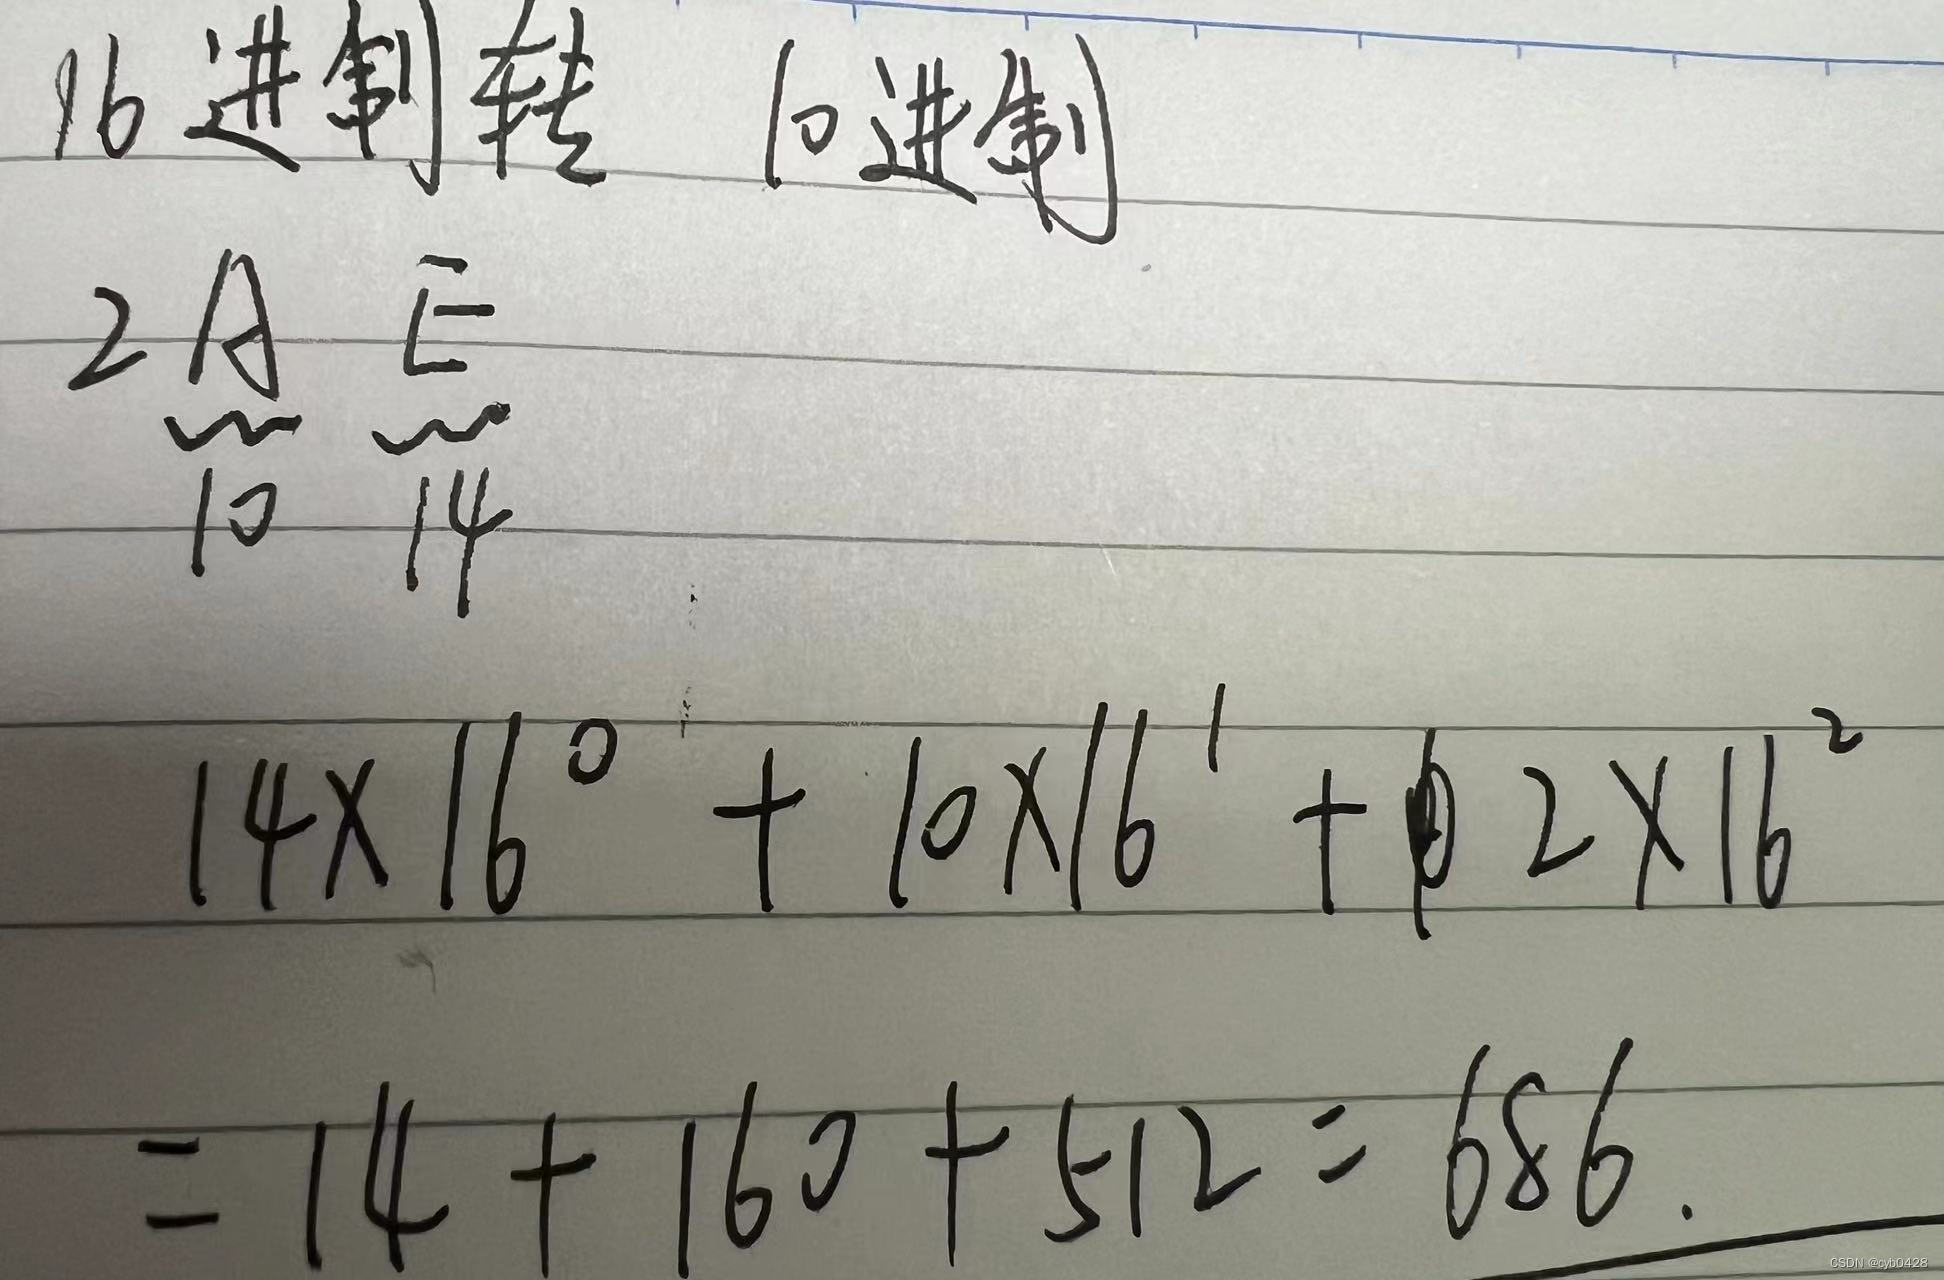 16进制转 10进制
2 A E
10 14
14×16⁰ + 10×16¹ + 2×16²
= 14 + 160 + 512 = 686.
CSDN @cyb0428